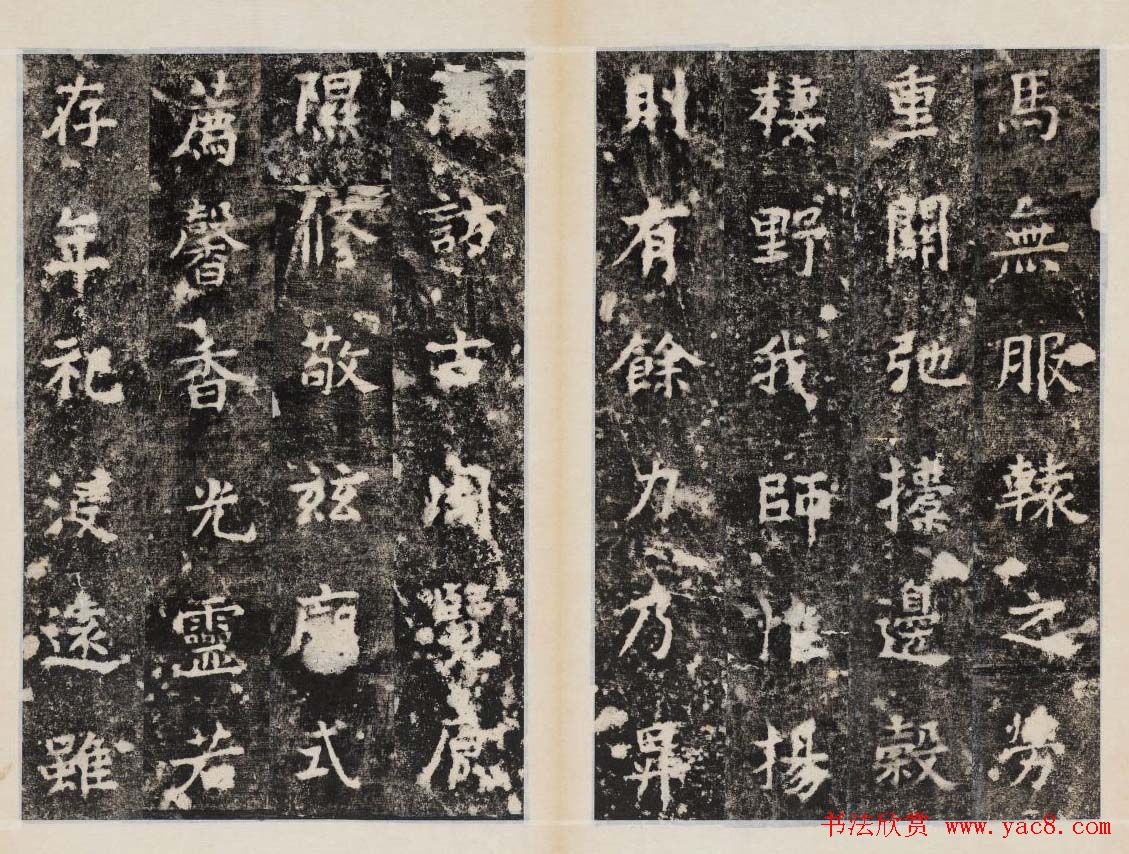 馬無服轅之勞
重關弛㯓邊穀
棲野我師惟揚
則有餘力乃昇
訪古周覽原
隰修敬茲廟式
薦馨香光靈若
存年祀浸遠雖
书法欣赏 www.yac8.com